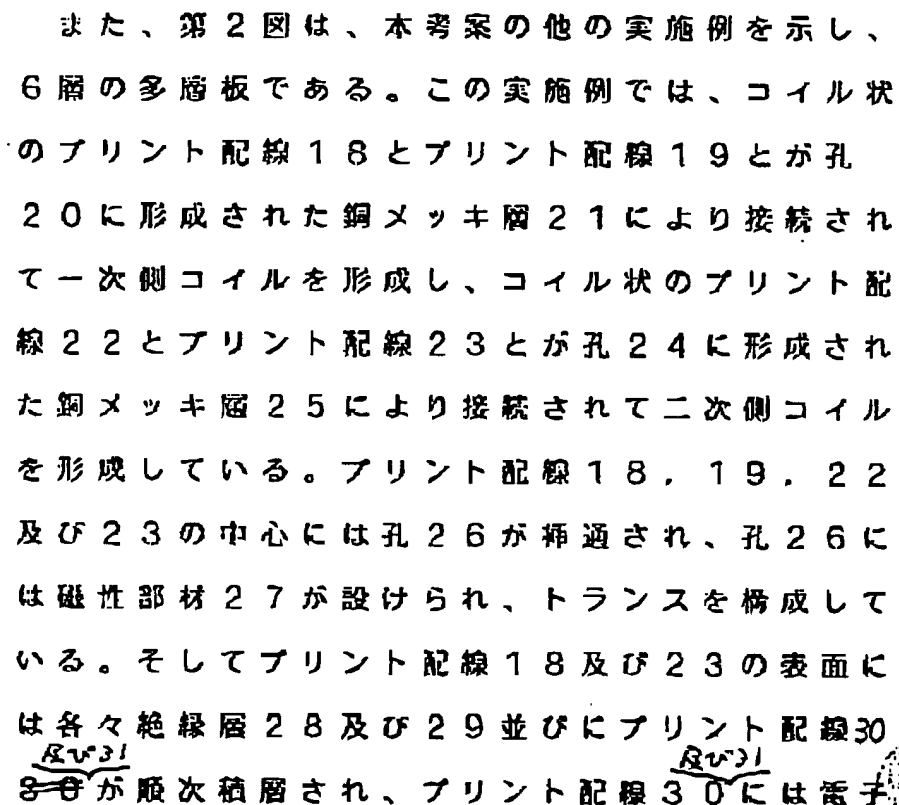 また、第2図は、本考案の他の実施例を示し、
6層の多層板である。この実施例では、コイル状
のプリント配線18とプリント配線19とが孔
20に形成された銅メッキ層21により接続され
て一次側コイルを形成し、コイル状のプリント配
線22とプリント配線23とが孔24に形成され
た銅メッキ層25により接続されて二次側コイル
を形成している。プリント配線18,19,22
及び23の中心には孔26が挿通され、孔26に
は磁性部材27が設けられ、トランスを構成して
いる。そしてプリント配線18及び23の表面に
は各々絶縁層28及び29並びにプリント配線30
及び31 及び31
が順次積層され、プリント配線30には電子